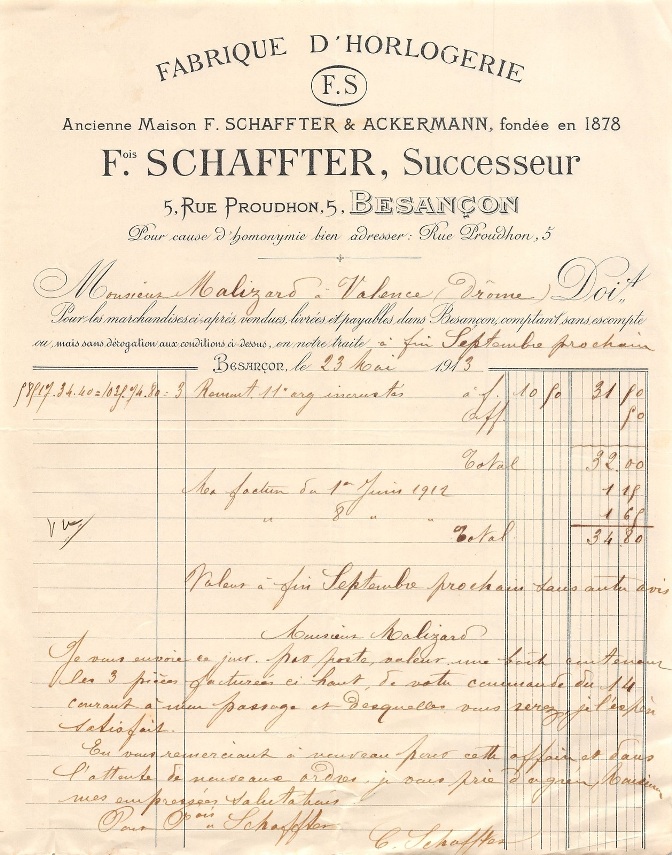 FABRIQUE D'HORLOGERIE
F.S
Ancienne Maison F. SCHAFFTER & ACKERMANN, fondée en 1878
Fois SCHAFFTER, Successeur
5, RUE PROUDHON, 5, BESANÇON
Pour cause d'homonymie bien adresser: Rue Proudhon, 5
Monsieur Malizard à Valence (Drôme) Doit
Pour les marchandises ci-après, vendues, livrées et payables dans Besançon, comptant sans escompte
ou, mais sans dérogation aux conditions ci dessus, en notre traite à fin Septembre prochain
BESANÇON, le 23 Mai 1913
3 Remont. 11e arg incrustés à f. 10 50 31 50
aff. 50
Total 32.00
Ma facture du 1er Juin 1912 1 15
" 8 " " 1 65
Total 34.80
Valeur à fin Septembre prochain sans autre avis
Monsieur Malizard
Je vous envoie ce jour par poste, valeur, une boîte contenant
les 3 pièces facturées ci haut, de votre commande du 14
courant à mon passage et desquelles vous serez, je l'espère
satisfait.
En vous remerciant à nouveau pour cette affaire et dans
l'attente de nouveaux ordres je vous prie d'agréer, Monsieur
mes empressées salutations
Pour Fois Schaffter
C. Schaffter